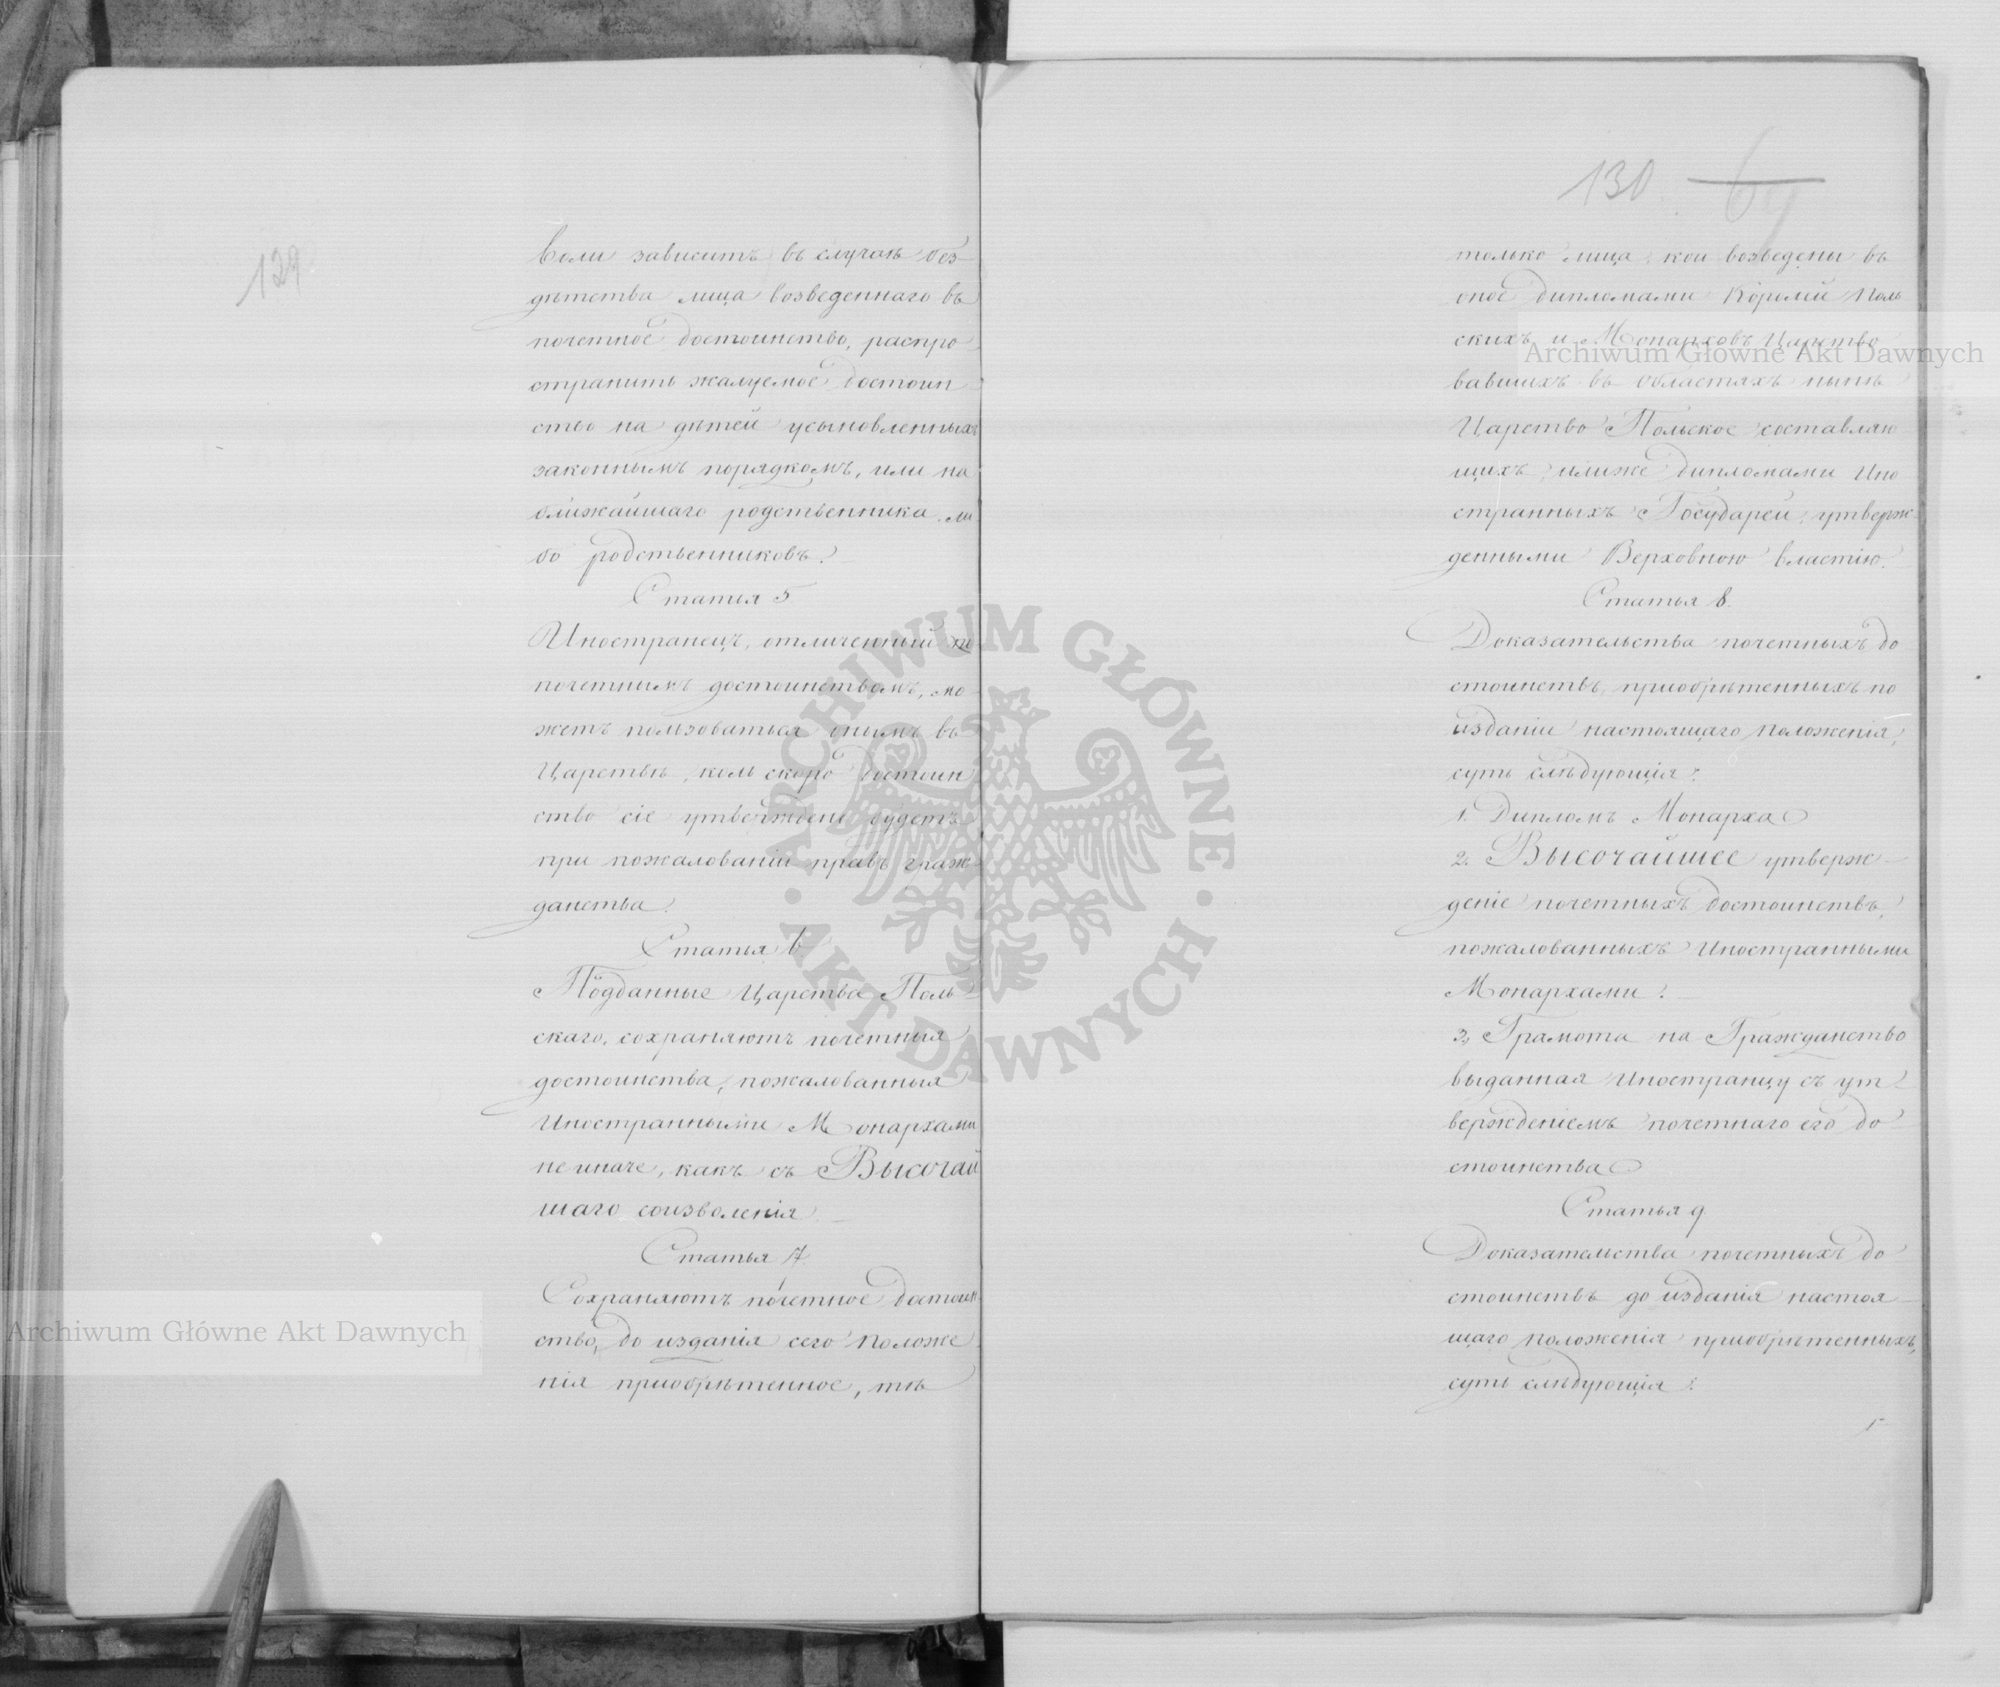 129
воли зависитъ въ случаѣ без-
дѣтства лица возведеннаго въ
почетное достоинство, распро-
странить жалуемое достоин-
ство на дѣтей усыновленныхъ
законнымъ порядкомъ, или на
ближайшаго родственника ли-
бо родственниковъ.
Статья 5
Иностранецъ, отличенный
почетнымъ достоинствомъ, мо-
жетъ пользоваться онымъ въ
Царствѣ, коль скоро достоин
ство сіе утверждено будетъ
при пожалованіи правъ граж-
данства.
Статья 6
Подданные Царства Поль-
скаго, сохраняютъ почетныя
достоинства, пожалованныя
Иностранными Монархами
не иначе, какъ съ Высочай
шаго соизволенія.
Статья 7.
Сохраняютъ почетное достоин-
ство, до изданія сего положе
нія приобрѣтенное, тѣ
130 69
только лица, кои возведены въ
оное дипломами Королей Поль
скихъ и Монарховъ Царство
вавшихъ въ областяхъ нынѣ
Царство Польское составляю
щихъ, илиже дипломами Ино
странныхъ Государей, утверж-
денными Верховною властію.
Статья 8.
Доказательства почетныхъ до
стоинствъ, приобрѣтенныхъ по
изданіи настоящаго положенія,
суть слѣдующія:
1. Дипломъ Монарха
2. Высочайшее утверж-
деніе почетныхъ достоинствъ,
пожалованныхъ Иностранными
Монархами.
3, Грамота на Гражданство
выданная Иностранцу съ ут-
вержденіемъ почетнаго его до
стоинства
Статья 9
Доказательства почетныхъ до
стоинствъ до изданія настоя-
щаго положенія приобрѣтенныхъ,
суть слѣдующія:
Archiwum Główne Akt Dawnych
Archiwum Główne Akt Dawnych
ARCHIWUM GŁÓWNE · AKT DAWNYCH ·